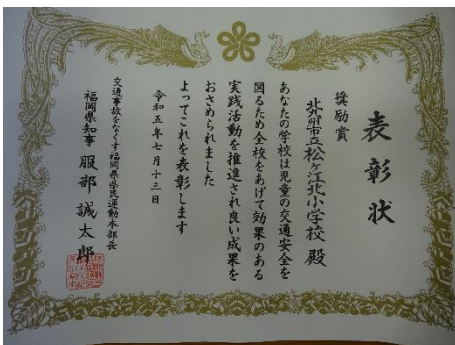 表彰状
奨励賞
北九州市立松ヶ江北小学校 殿
あなたの学校は児童の交通安全を
図るため全校をあげて効果のある
実践活動を推進され良い成果を
おさめられました
よってこれを表彰します
令和五年七月十三日
交通事故をなくす福岡県県民運動本部長
福岡県知事 服部誠太郎